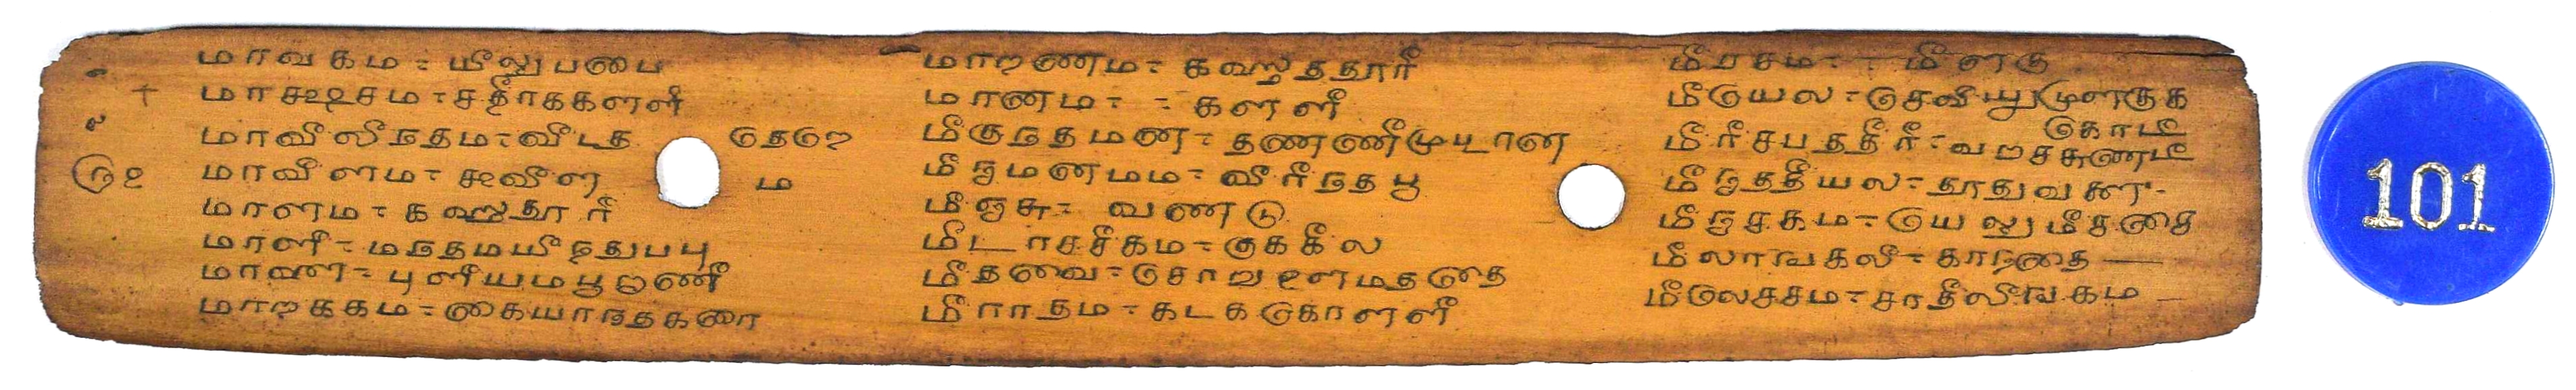 மாவகம - மீலுபபை
மாக்ஷசம - சதிாககளளி
மாவிலிநதம - விடத
மாவிளம - கூவிள
மாளம - கஹதூரி
மாளி - மநதமயிநதுபபு
மாணி - புளியமபூறணி
மாறககம - கையாநதகரை
தெறெ
ம
மாறணம - கஹததூரி
மாணம - களளி
மிகுநதமண - தணணிமுடான
மிநுமணமம - விரிநதபூ
மிஞசு - வணடு
மிடாசசிகம - குககில
மிதவை - சோறுஉளமதததை
மிராதம - கடககொளளி
மிரசம - மிளகு
மிரியல - செவியுமுளகுக
கொமி
மிரிசபததிரி - வறசசுணமி
மிருததியல - தூதுவளை
மிருசகம - யேலுமிசதை
மிலாஙகலி - காநதை
மிலேசசம - சாதிலிஙகம
101